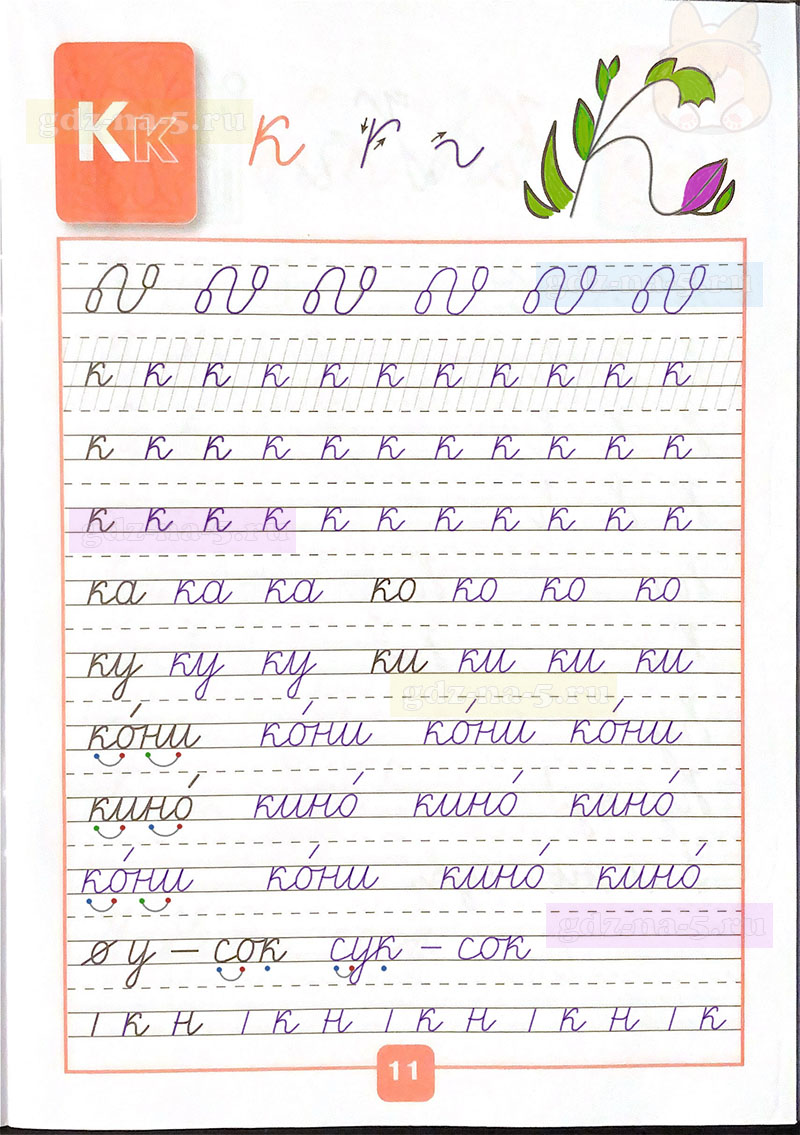 Кк к
gdz-na-5.ru
gdz-na-5.ru
к к к к к к к к к к к
к к к к к к к к к к к
к к к к к к к к к к к
gdz-na-5.ru
ка ка ка ко ко ко ко
ку ку ку ки ки ки ки
gdz-na-5.ru
ко́ни ко́ни ко́ни ко́ни
кино́ кино́ кино́ кино́
ко́ни ко́ни кино́ кино́
gdz-na-5.ru
о у – сок сук – сок
ı к н ı к н ı к н ı к н ı к
11